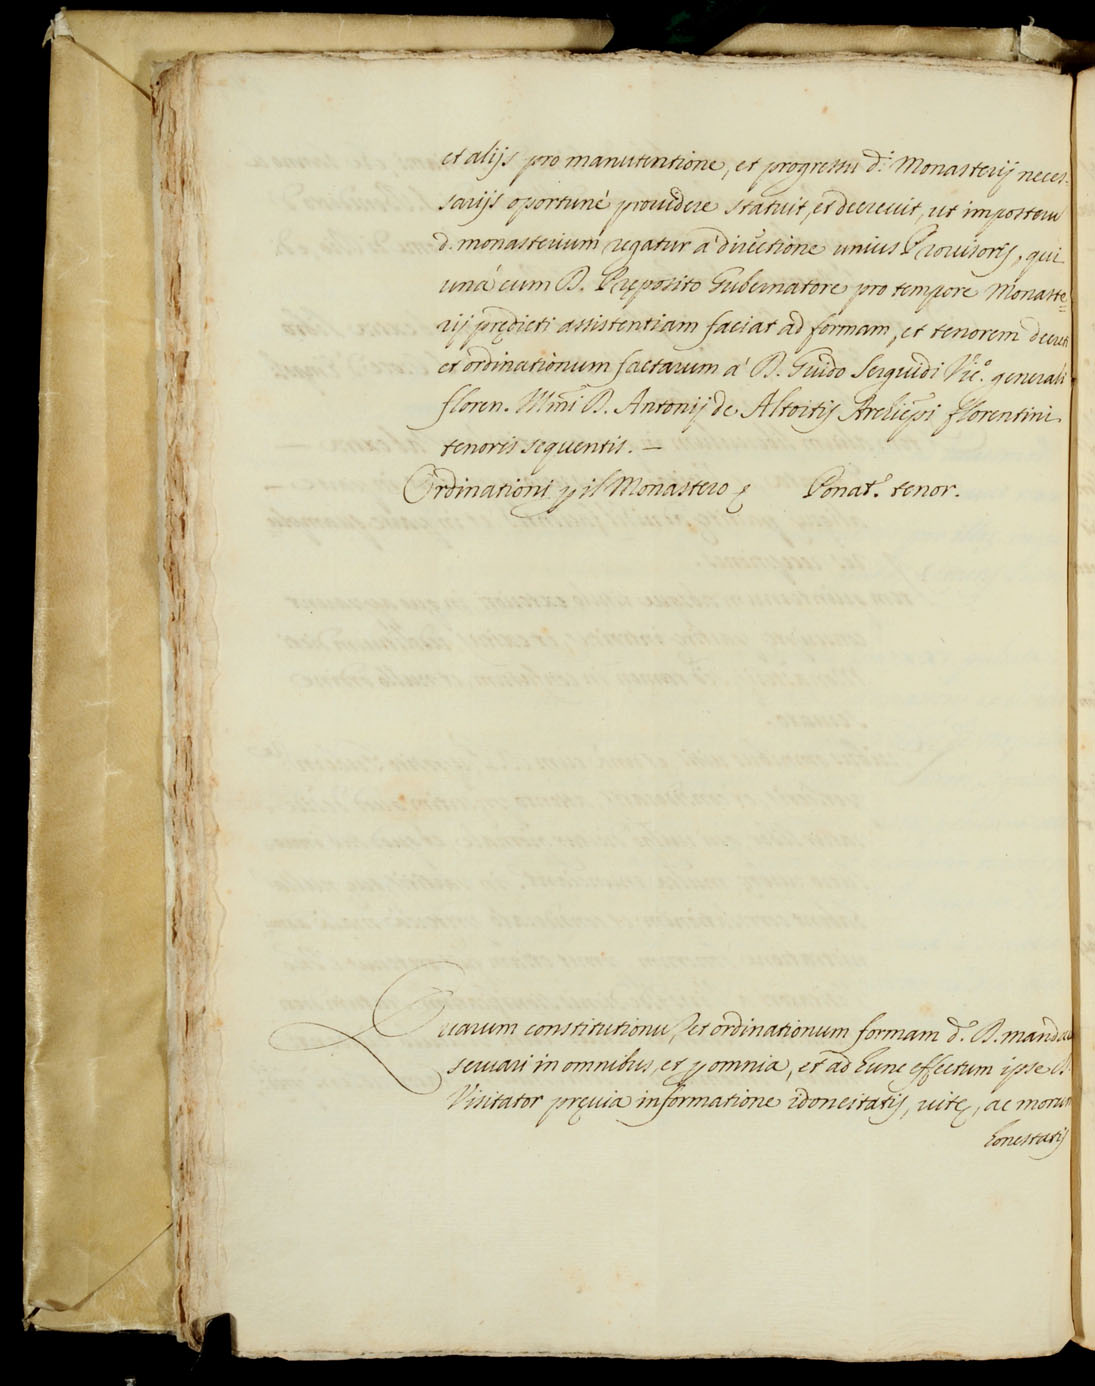 et alijs pro manutentione, et progressu d.i Monasterij neces-
sarijs oportunè prouidere statuit, et decreuit, ut imposteru
d. monasterium regatur à directione unius Prouisoris, qui
unà cum D. Pręposito Gubernatore pro tempore Monaste=
rij prędicti assistentiam faciat ad formam, et tenorem decreti
et ordinationum factarum à D. Guido Serguidi Vic.o generali
floren. Illmi D. Antonij de Altoitis Archiepi florentini
tenoris sequentis. —
Ordinationi p il Monastero &c Ponat.r tenor.
Quarum constitutionu, et ordinationum formam d.s D. manda
seruari in omnibus, et p omnia, et ad hunc effectum ipse D.
Visitator pręuia informatione idoneitatis, uitę, ac morum
honestatis